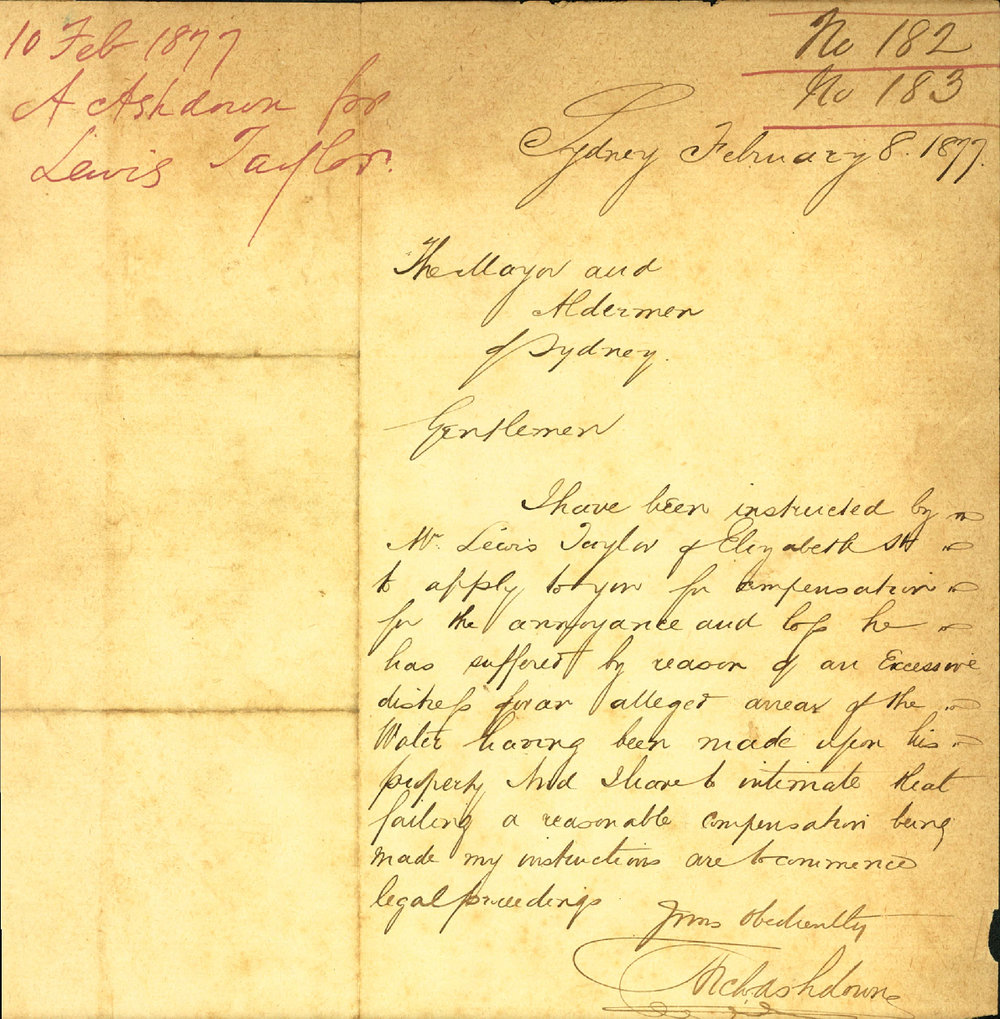 10 Feb 1877
A Ashdown for
Lewis Taylor.
No 182
No 183
Sydney February 8. 1877.
The Mayor and
Aldermen
of Sydney.
Gentlemen
I have been instructed by
Mr. Lewis Taylor of Elizabeth St
to apply to you for compensation
for the annoyance and loss he
has suffered by reason of an Excessive
distress for an alleged arrear of the
Water having been made upon his
property And I have to intimate that
failing a reasonable compensation being
made my instructions are to commence
legal proceedings
Yours obediently
Ashdown